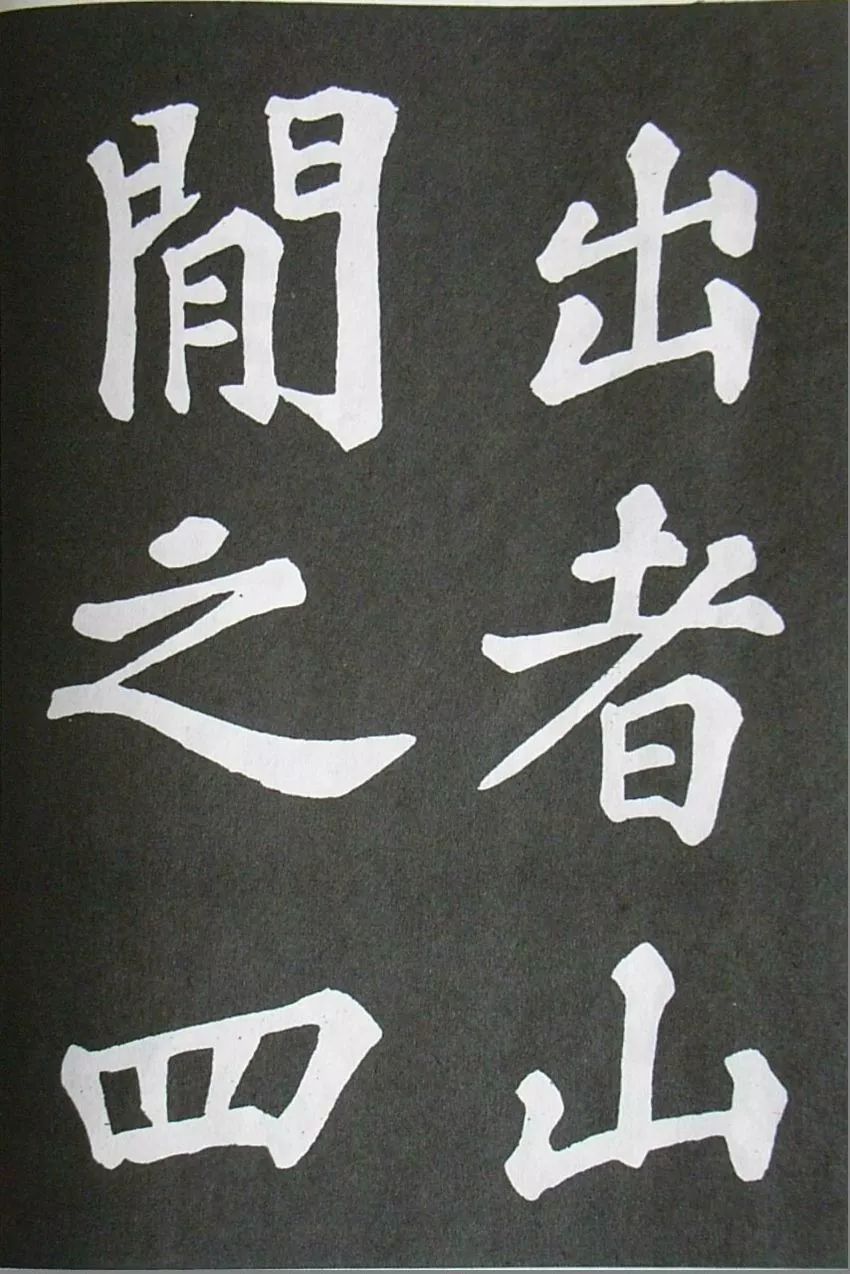 出者山
間之四